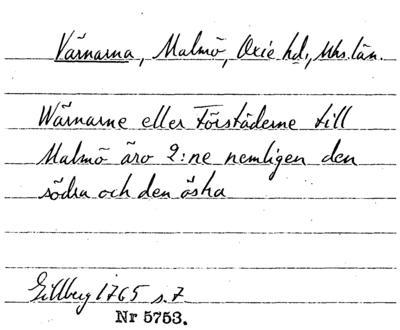 Värnarna, Malmö, Oxie hd, Mhs. län.
Wärnarne eller Förstäderne till
Malmö äro 2:ne nemligen den
södra och den östra
Gillberg 1765 s. 7
Nr 5753.